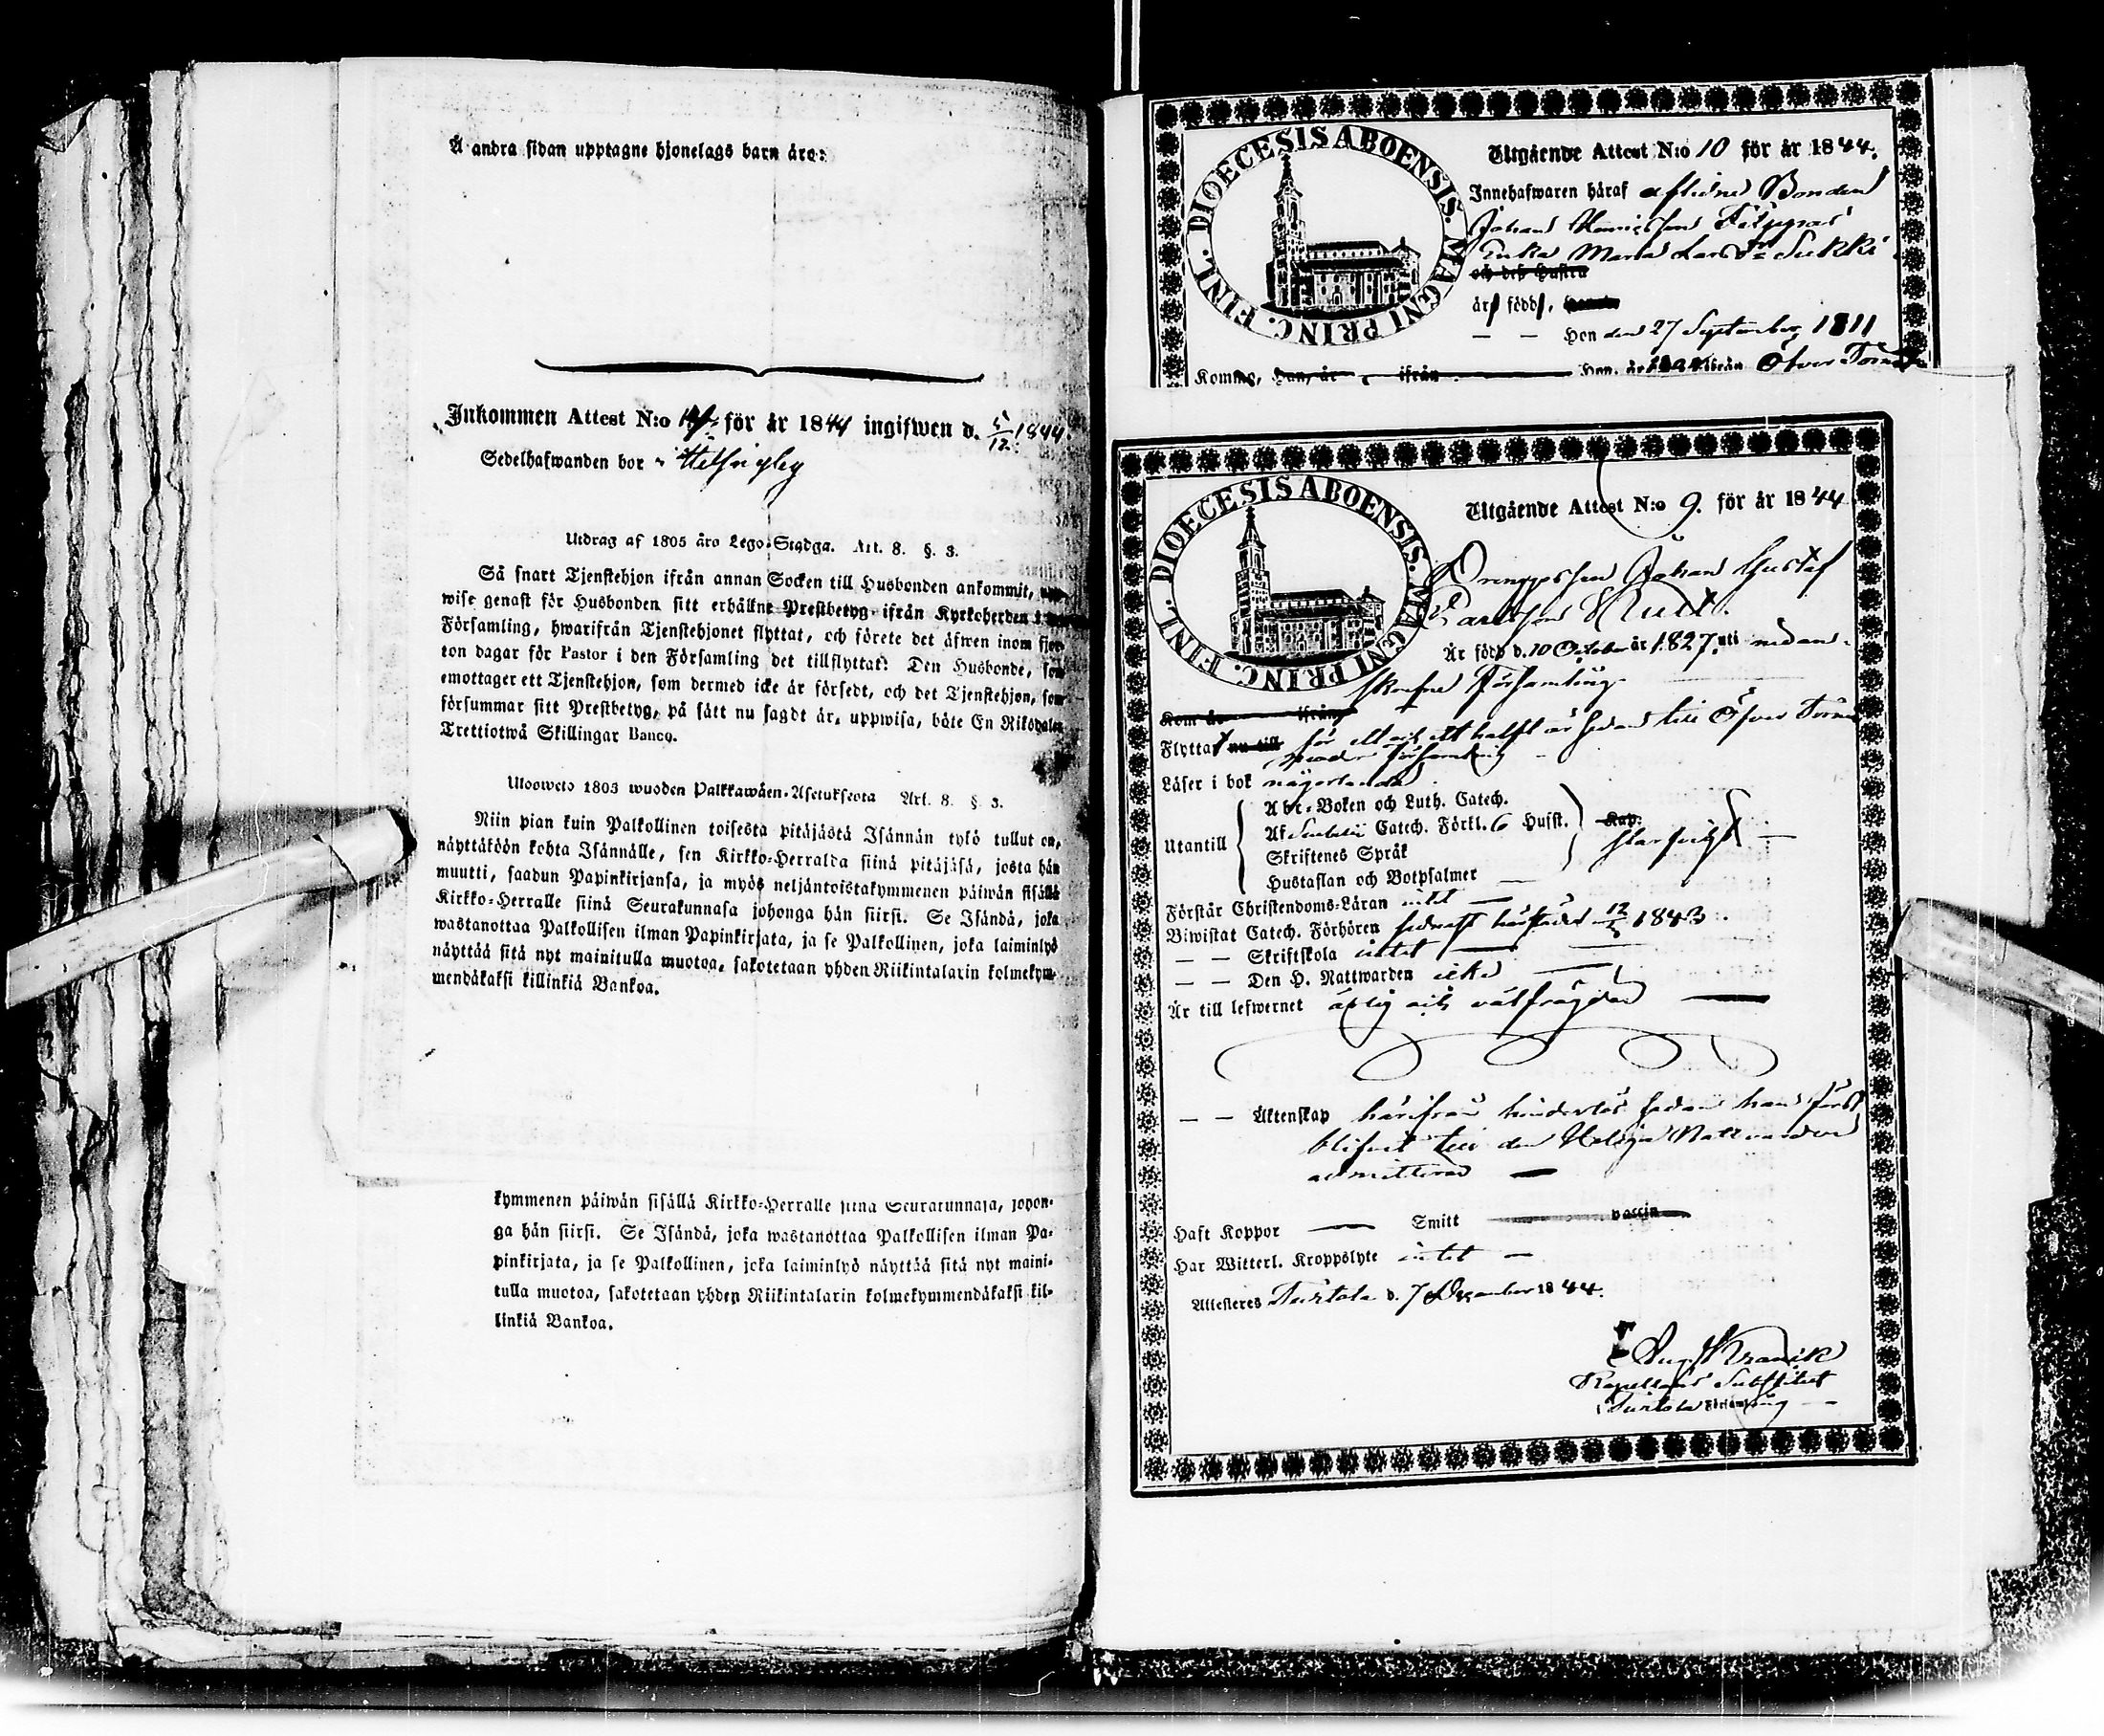 Å andra sidan upptagne hjonelags barn äro:
Inkommen Attest N:o för år 1844 ingifwen d. 5/12 1844.
Sedelhafwanden bor
Utdrag af 1805 års Lego-Stadga. Art. 8. §. 3.
Så snart Tjenstehjon ifrån annan Socken till Husbonden ankommit,
wise genast för Husbonden sitt erhållne Prestbetyg ifrån Kyrkoherden i
Församling, hwarifrån Tjenstehjonet flyttat, och förete det äfwen inom fjor-
ton dagar för Pastor i den Församling det tillflyttat: Den Husbonde, som
emottager ett Tjenstehjon, som dermed icke är försedt, och det Tjenstehjon, som
försummar sitt Prestbetyg, på sätt nu sagdt är, uppwisa, böte En Riksdaler
Trettiotwå Skillingar Banco.
Ulosweto 1805 wuoden Palkkawäen-Asetuksesta Art. 8. §. 3.
Niin pian kuin Palkollinen toisesta pitäjästä Isännän tykö tullut on,
näyttäköön kohta Isännälle, sen Kirkko-Herralda siinä pitäjäsä, josta hän
muutti, saadun Papinkirjansa, ja myös neljäntoistakymmenen päiwän sisällä
Kirkko-Herralle siinä Seurakunnasa johonga hän siirsi. Se Isändä, joka
wastanottaa Palkollisen ilman Papinkirjata, ja se Palkollinen, joka laiminlyö
näyttää sitä nyt mainitulla muotoa, sakotetaan yhden Riikintalarin kolmekym-
mendäkaksi killinkiä Bankoa.
kymmenen päiwän sisällä Kirkko-Herralle siinä Seurakunnasa, johon-
ga hän siirsi. Se Isändä, joka wastanottaa Palkollisen ilman Pa-
pinkirjata, ja se Palkollinen, joka laiminlyö näyttää sitä nyt maini-
tulla muotoa, sakotetaan yhden Riikintalarin kolmekymmendäkaksi kil-
linkiä Bankoa.
DIOECESIS ABOENSIS. MAGNI PRINC. FINL.
Utgående Attest N:o 10 för år 1844.
Innehafwaren häraf aflidne Bonden
Johan Henricsson
Enka Maria Larsdr Sukki
och dess Hustru
är född,
— — Hon den 27 September 1811
Kommo, Han, år ifrån Hon, år ifrån Öfver Torneå
DIOECESIS ABOENSIS. MAGNI PRINC. FINL.
Utgående Attest N:o 9. för år 1844
Drengen Johan Gustaf
Carlsson
Är född d. 10 October år 1827. uti nedan-
skrefne Församling
Kom år ifrån
Flyttat nu till för ett och ett halft år sedan till Öfver Torneå
Församling
Läser i bok någorlunda
Utantill
Abc-Boken och Luth. Catech.
Af Catech. Förkl. 6 Hufst.
Skriftenes Språk
Hustaflan och Botpsalmer
Kap.
Förstår Christendoms-Läran
Biwistat Catech. Förhören sednast härstädes 12/2 1843.
— — Skriftskola intet
— — Den H. Nattwarden icke
Är till lefwernet ärlig och välfrägdad
— — Äktenskap härifrån hinderlös sedan han först
blifvit till den Heliga Nattvarden
admitterad
Haft Koppor — Smitt vaccin
Har Witterl. Kroppslyte intet
Attesteres Turtola d. 7 December 1844.
Aug. Kranck
Kapellans Substitut
i Turtola Församling